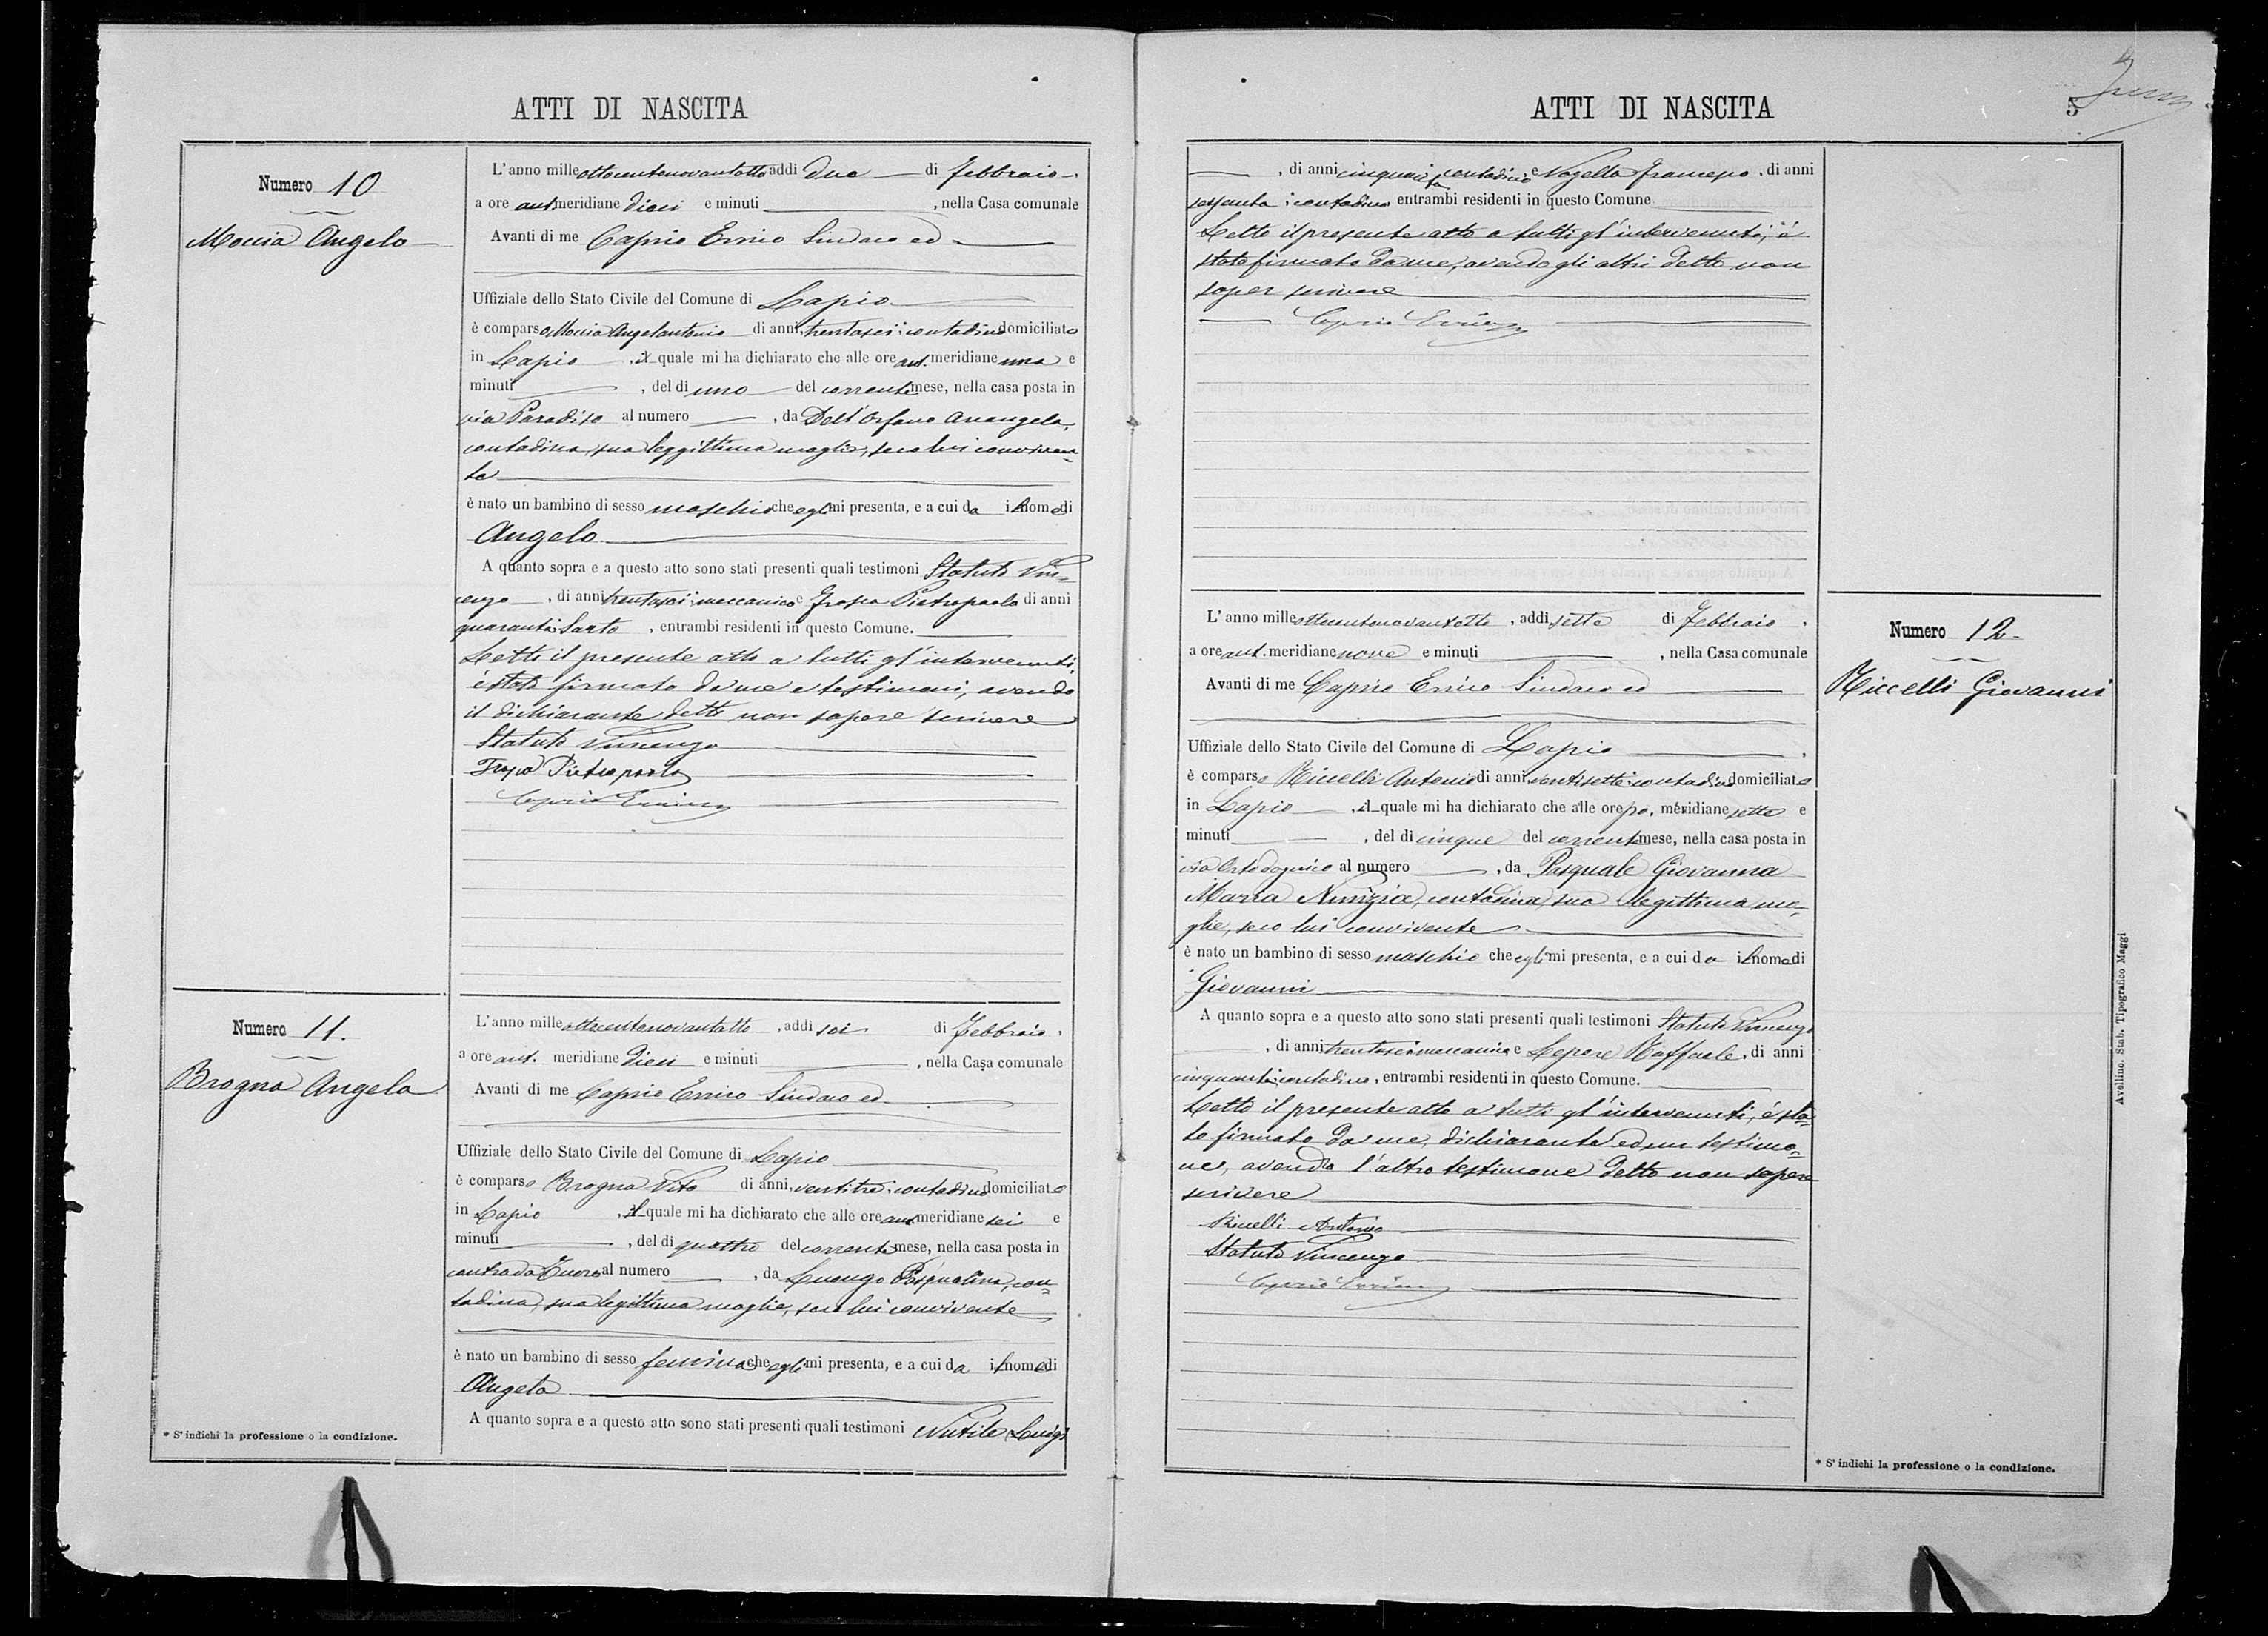 ATTI DI NASCITA
Numero 10
Moccia Angelo
L'anno mille ottocentonovantotto addì due di febbraio,
a ore ant. meridiane dieci e minuti , nella Casa comunale
Avanti di me Caprio Errico Sindaco ed
Uffiziale dello Stato Civile del Comune di Lapio
è comparso Moccia Angelantonio di anni trentasei contadino domiciliato
in Lapio , il quale mi ha dichiarato che alle ore ant. meridiane una e
minuti , del dì uno del corrente mese, nella casa posta in
via Paradiso al numero , da Dell'Orfano Arcangela,
contadina, sua leggittima moglie, seco lui conviven-
te
è nato un bambino di sesso maschio che egli mi presenta, e a cui da il nome di
Angelo
A quanto sopra e a questo atto sono stati presenti quali testimoni Statuto Vin-
cenzo , di anni trentasei meccanico e Pietropaolo di anni
quaranta Sarto , entrambi residenti in questo Comune.
Letto il presente atto a tutti gl'intervenuti,
è stato firmato da me e testimoni, avendo
il dichiarante detto non sapere scrivere
Statuto Vincenzo
Pietropaolo
Caprio Errico
Numero 11.
Brogna Angela
L'anno mille ottocentonovantotto , addì sei di Febbraio,
a ore ant. meridiane dieci e minuti , nella Casa comunale
Avanti di me Caprio Errico Sindaco ed
Uffiziale dello Stato Civile del Comune di Lapio
è comparso Brogna Vito di anni, ventitre contadino domiciliato
in Lapio , il quale mi ha dichiarato che alle ore ant. meridiane sei e
minuti , del dì quattro del corrente mese, nella casa posta in
contrada al numero , da Luongo Pasqualina, con-
tadina, sua legittima moglie, seco lui convivente
è nato un bambino di sesso femina che egli mi presenta, e a cui da il nome di
Angela
A quanto sopra e a questo atto sono stati presenti quali testimoni Nutile Luigi
* S'indichi la professione o la condizione.
ATTI DI NASCITA
5
, di anni cinquanta contadino e Vozella Francesco, di anni
sessanta contadino entrambi residenti in questo Comune
Letto il presente atto a tutti gl'intervenuti, è
stato firmato da me, avendo gli altri detto non
saper scrivere
Caprio Errico
Numero 12.
Riccelli Giovanni
L'anno mille ottocentonovantotto , addì sette di Febbraio,
a ore ant. meridiane nove e minuti , nella Casa comunale
Avanti di me Caprio Errico Sindaco ed
Uffiziale dello Stato Civile del Comune di Lapio ,
è comparso Riccelli Antonio di anni ventisette contadino domiciliato
in Lapio , il quale mi ha dichiarato che alle ore po. meridiane sette e
minuti , del dì cinque del corrente mese, nella casa posta in
via al numero , da Pasquale Giovanna
Maria Nunzia, contadina, sua legittima mo-
glie, seco lui convivente
è nato un bambino di sesso maschio che egli mi presenta, e a cui da il nome di
Giovanni
A quanto sopra e a questo atto sono stati presenti quali testimoni Statuto Vincenzo
, di anni trentasei meccanico e Lepore Raffaele, di anni
cinquanta contadino, entrambi residenti in questo Comune.
Letto il presente atto a tutti gl'intervenuti, è sta-
to firmato da me, dichiarante ed un testimo-
ne, avendo l'altro testimone detto non sapere
scrivere
Riccelli Antonio
Statuto Vincenzo
Caprio Errico
* S'indichi la professione o la condizione.
Avellino. Stab. Tipografico Maggi